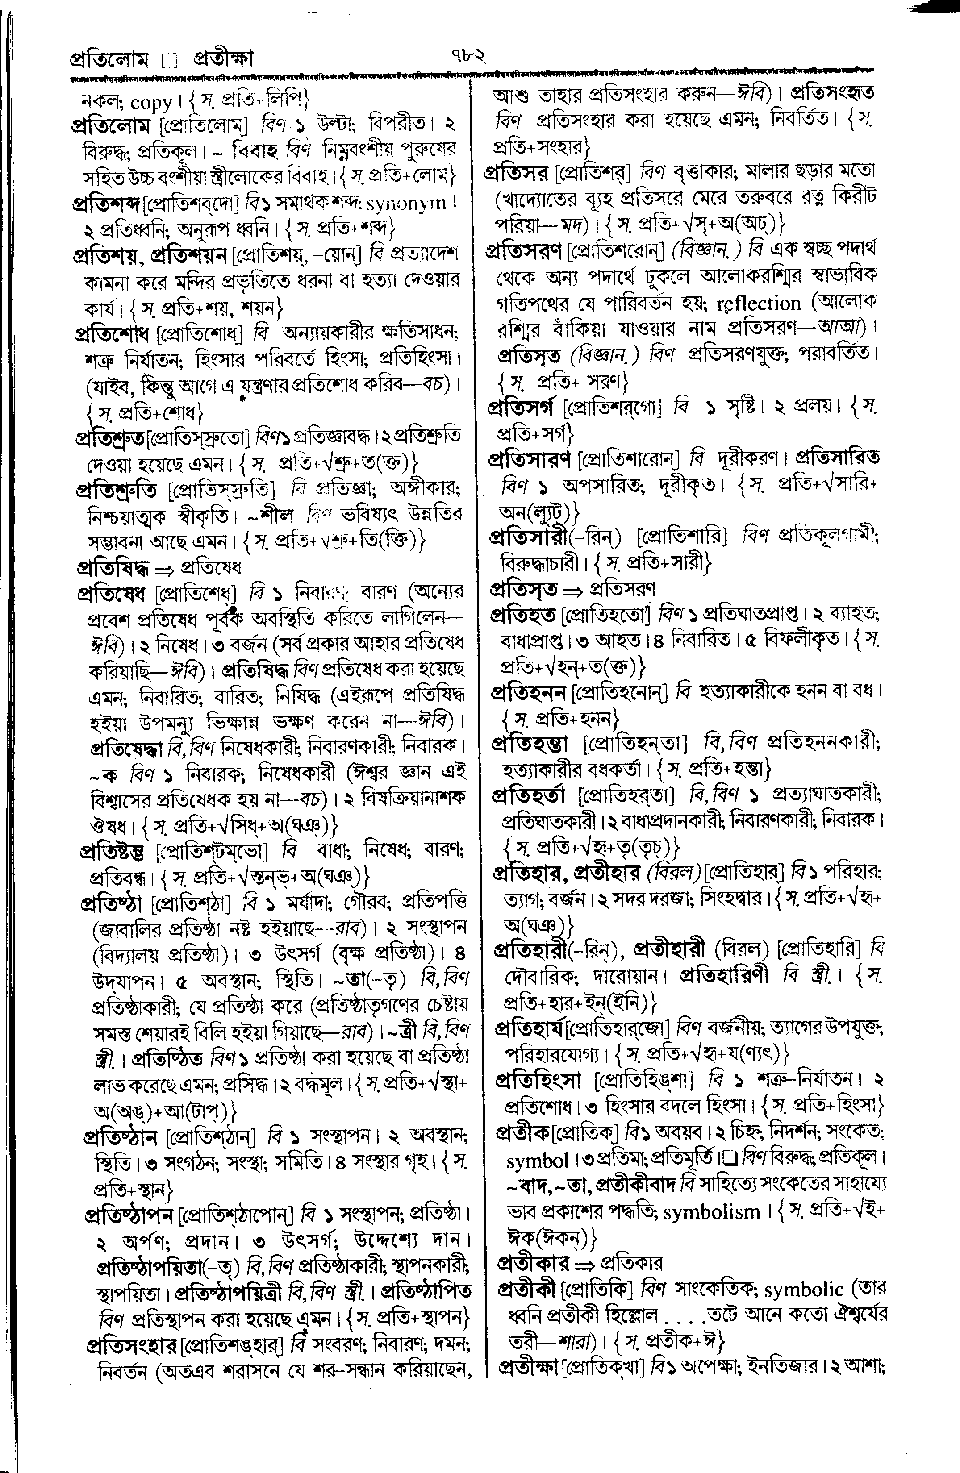 প্রতিলোম □ প্রতীক্ষা
৭৮২
নকল; copy। {স. প্রতি+লিপি}
প্রতিলোম [প্রোতিলোম্] বিণ ১ উল্টা; বিপরীত। ২
বিরুদ্ধ; প্রতিকূল। ~ বিবাহ বিণ নিম্নবংশীয় পুরুষের
সহিত উচ্চ বংশীয়া স্ত্রীলোকের বিবাহ। {স. প্রতি+লোম}
প্রতিশব্দ [প্রোতিশব্‌দো] বি ১ সমার্থক শব্দ; synonym।
২ প্রতিধ্বনি; অনুরূপ ধ্বনি। {স. প্রতি+শব্দ}
প্রতিশয়, প্রতিশয়ন [প্রোতিশয়্, –য়োন্] বি প্রত্যাদেশ
কামনা করে মন্দির প্রভৃতিতে ধরনা বা হত্যা দেওয়ার
কার্য। {স. প্রতি+শয়, শয়ন}
প্রতিশোধ [প্রোতিশোধ্] বি অন্যায়কারীর ক্ষতিসাধন;
শত্রু নির্যাতন; হিংসার পরিবর্তে হিংসা; প্রতিহিংসা।
(যাইব, কিন্তু আগে এ যন্ত্রণার প্রতিশোধ করিব—বচ)।
{স. প্রতি+শোধ}
প্রতিশ্রুত [প্রোতিস্‌স্রুতো] বিণ ১ প্রতিজ্ঞাবদ্ধ। ২ প্রতিশ্রুতি
দেওয়া হয়েছে এমন। {স. প্রতি+√শ্রু+ত(ক্ত)}
প্রতিশ্রুতি [প্রোতিস্‌স্রুতি] বি প্রতিজ্ঞা; অঙ্গীকার;
নিশ্চয়াত্মক স্বীকৃতি। ~শীল বিণ ভবিষ্যৎ উন্নতির
সম্ভাবনা আছে এমন। {স. প্রতি+√শ্রু+তি(ক্তি)}
প্রতিষিদ্ধ ⇒ প্রতিষেধ
প্রতিষেধ [প্রোতিশেধ্] বি ১ নিবারণ; বারণ (অন্যের
প্রবেশ প্রতিষেধ পূর্বক অবস্থিতি করিতে লাগিলেন—
ঈবি)। ২ নিষেধ। ৩ বর্জন (সর্ব প্রকার আহার প্রতিষেধ
করিয়াছি—ঈবি)। প্রতিষিদ্ধ বিণ প্রতিষেধ করা হয়েছে
এমন; নিবারিত; বারিত; নিষিদ্ধ (এইরূপে প্রতিষিদ্ধ
হইয়া উপমন্যু ভিক্ষান্ন ভক্ষণ করেন না—ঈবি)।
প্রতিষেদ্ধা বি, বিণ নিষেধকারী; নিবারণকারী; নিবারক।
~ক বিণ ১ নিবারক; নিষেধকারী (ঈশ্বর জ্ঞান এই
বিশ্বাসের প্রতিষেধক হয় না—বচ)। ২ বিষক্রিয়ানাশক
ঔষধ। {স. প্রতি+√সিধ্+অ(ঘঞ্)}
প্রতিষ্টম্ভ [প্রোতিশ্‌টম্‌ভো] বি বাধা; নিষেধ; বারণ;
প্রতিবন্ধ। {স. প্রতি+√স্তন্‌ভ্+অ(ঘঞ্)}
প্রতিষ্ঠা [প্রোতিশ্‌ঠা] বি ১ মর্যাদা; গৌরব; প্রতিপত্তি
(জাবালির প্রতিষ্ঠা নষ্ট হইয়াছে—রাব)। ২ সংস্থাপন
(বিদ্যালয় প্রতিষ্ঠা)। ৩ উৎসর্গ (বৃক্ষ প্রতিষ্ঠা)। ৪
উদযাপন। ৫ অবস্থান; স্থিতি। ~তা(–তৃ) বি, বিণ
প্রতিষ্ঠাকারী; যে প্রতিষ্ঠা করে (প্রতিষ্ঠাতৃগণের চেষ্টায়
সমস্ত শেয়ারই বিলি হইয়া গিয়াছে—রাব)। ~ত্রী বি, বিণ
স্ত্রী। প্রতিষ্ঠিত বিণ ১ প্রতিষ্ঠা করা হয়েছে বা প্রতিষ্ঠা
লাভ করেছে এমন; প্রসিদ্ধ। ২ বদ্ধমূল। {স. প্রতি+√স্থা+
অ(অঙ্)+আ(টাপ্)}
প্রতিষ্ঠান [প্রোতিশ্‌ঠান্] বি ১ সংস্থাপন। ২ অবস্থান;
স্থিতি। ৩ সংগঠন; সংস্থা; সমিতি। ৪ সংস্থার গৃহ। {স.
প্রতি+স্থান}
প্রতিষ্ঠাপন [প্রোতিশ্‌ঠাপোন্] বি ১ সংস্থাপন; প্রতিষ্ঠা।
২ অর্পণ; প্রদান। ৩ উৎসর্গ; উদ্দেশ্যে দান।
প্রতিষ্ঠাপয়িতা(–তৃ) বি, বিণ প্রতিষ্ঠাকারী; স্থাপনকারী;
স্থাপয়িতা। প্রতিষ্ঠাপয়িত্রী বি, বিণ স্ত্রী। প্রতিষ্ঠাপিত
বিণ প্রতিস্থাপন করা হয়েছে এমন। {স. প্রতি+স্থাপন}
প্রতিসংহার [প্রোতিশঙ্‌হার্] বি সংবরণ; নিবারণ; দমন;
নিবর্তন (অতএব শরাসনে যে শর–সন্ধান করিয়াছেন,
আশু তাহার প্রতিসংহার করুন—ঈবি)। প্রতিসংহৃত
বিণ প্রতিসংহার করা হয়েছে এমন; নিবর্তিত। {স.
প্রতি+সংহার}
প্রতিসর [প্রোতিশর্] বিণ বৃত্তাকার; মালার ছড়ার মতো
(খাদ্যোতের ব্যূহ প্রতিসরে মেরে তরুবরে রত্ন কিরীট
পরিয়া—মদ)। {স. প্রতি+√সৃ+অ(অচ্)}
প্রতিসরণ [প্রোতিশরোন্] (বিজ্ঞান.) বি এক স্বচ্ছ পদার্থ
থেকে অন্য পদার্থে ঢুকলে আলোকরশ্মির স্বাভাবিক
গতিপথের যে পারিবর্তন হয়; reflection (আলোক
রশ্মির বাঁকিয়া যাওয়ার নাম প্রতিসরণ—আআ)।
প্রতিসৃত (বিজ্ঞান.) বিণ প্রতিসরণযুক্ত; পরাবর্তিত।
{স. প্রতি+ সরণ}
প্রতিসর্গ [প্রোতিশর্‌গো] বি ১ সৃষ্টি। ২ প্রলয়। {স.
প্রতি+সর্গ}
প্রতিসারণ [প্রোতিশারোন্] বি দূরীকরণ। প্রতিসারিত
বিণ ১ অপসারিত; দূরীকৃত। {স. প্রতি+√সারি+
অন(ল্যুট্)}
প্রতিসারী(–রিন্) [প্রোতিশারি] বিণ প্রতিকূলগামী;
বিরুদ্ধাচারী। {স. প্রতি+সারী}
প্রতিসৃত ⇒ প্রতিসরণ
প্রতিহত [প্রোতিহতো] বিণ ১ প্রতিঘাতপ্রাপ্ত। ২ ব্যাহত;
বাধাপ্রাপ্ত। ৩ আহত। ৪ নিবারিত। ৫ বিফলীকৃত। {স.
প্রতি+√হন্+ত(ক্ত)}
প্রতিহনন [প্রোতিহনোন্] বি হত্যাকারীকে হনন বা বধ।
{স. প্রতি+হনন}
প্রতিহন্তা [প্রোতিহন্‌তা] বি, বিণ প্রতিহননকারী;
হত্যাকারীর বধকর্তা। {স. প্রতি+হন্তা}
প্রতিহর্তা [প্রোতিহর্‌তা] বি, বিণ ১ প্রত্যাঘাতকারী;
প্রতিঘাতকারী। ২ বাধাপ্রদানকারী; নিবারণকারী; নিবারক।
{স. প্রতি+√হৃ+তৃ(তৃচ্)}
প্রতিহার, প্রতীহার (বিরল) [প্রোতিহার্] বি ১ পরিহার;
ত্যাগ; বর্জন। ২ সদর দরজা; সিংহদ্বার। {স. প্রতি+√হৃ+
অ(ঘঞ্)}
প্রতিহারী(–রিন্), প্রতীহারী (বিরল) [প্রোতিহারি] বি
দৌবারিক; দারোয়ান। প্রতিহারিণী বি স্ত্রী। {স.
প্রতি+হার+ইন্(ইনি)}
প্রতিহার্য [প্রোতিহার্‌জো] বিণ বর্জনীয়; ত্যাগের উপযুক্ত;
পরিহারযোগ্য। {স. প্রতি+√হৃ+য(ণ্যৎ)}
প্রতিহিংসা [প্রোতিহিঙ্‌শা] বি ১ শত্রু–নির্যাতন। ২
প্রতিশোধ। ৩ হিংসার বদলে হিংসা। {স. প্রতি+হিংসা}
প্রতীক [প্রোতিক্] বি ১ অবয়ব। ২ চিহ্ন; নিদর্শন; সংকেত;
symbol। ৩ প্রতিমা; প্রতিমূর্তি। □ বিণ বিরুদ্ধ; প্রতিকূল।
~বাদ, ~তা, প্রতীকীবাদ বি সাহিত্যে সংকেতের সাহায্যে
ভাব প্রকাশের পদ্ধতি; symbolism। {স. প্রতি+√ই+
ঈক(ঈকন্)}
প্রতীকার ⇒ প্রতিকার
প্রতীকী [প্রোতিকি] বিণ সাংকেতিক; symbolic (তার
ধ্বনি প্রতীকী হিল্লোল .... তটে আনে কতো ঐশ্বর্যের
তরী—শারা)। {স. প্রতীক+ঈ}
প্রতীক্ষা [প্রোতিক্‌খা] বি ১ অপেক্ষা; ইনতিজার। ২ আশা;